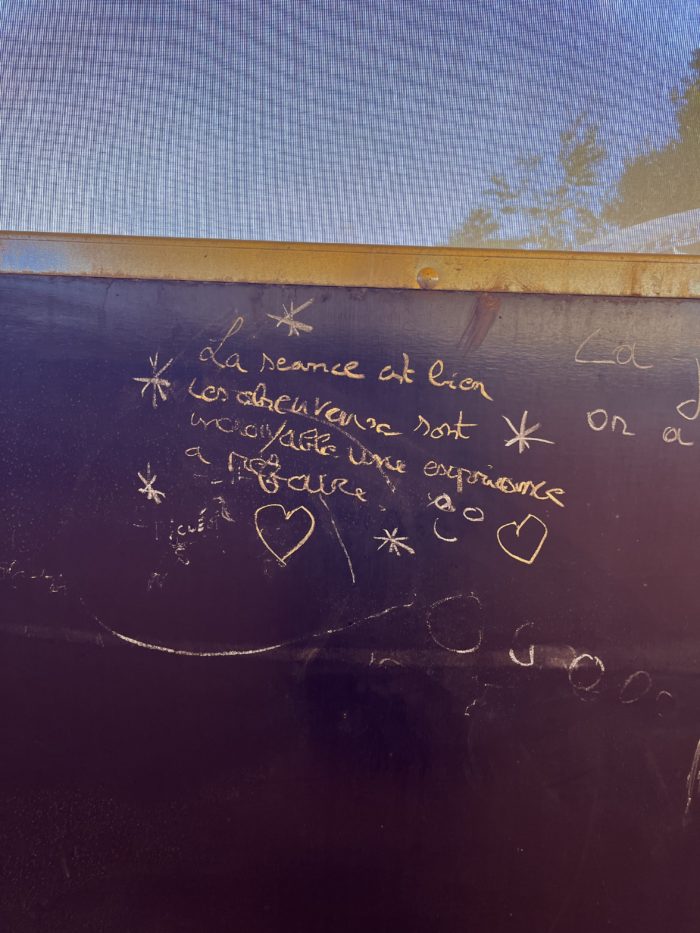 La seance est bien
Les abreuvens sont
incroyable une expérience
a refaire
La
on a